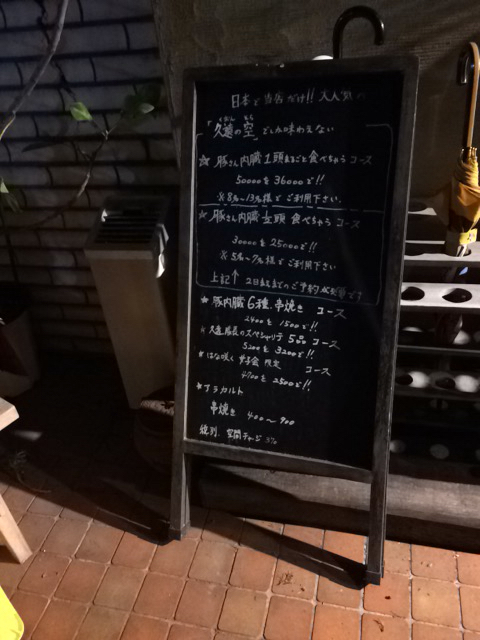 日本で当店だけ!! 大人気の
くおん そら
「久遠の空」でしか味わえない
☆ 豚さん内臓1頭まるごと食べちゃう コース
50000を 36000で!!
※8名〜13名様で ご利用下さい。
☆ 豚さん内臓 半頭 食べちゃう コース
30000を 25000で!!
※ 5名〜7名様で ご利用下さい
上記↑ 2日前までのご予約が必要です
★ 豚内臓 6種 串焼き コース
2400を 1500で!!
隊長のスペシャリテ 5品 コース
5200を 3200で!!
★ はな咲く 女子会 限定 コース
4700を 2500で!!
★ アラカルト
串焼き 400〜900
総別、空間チャージ 3%